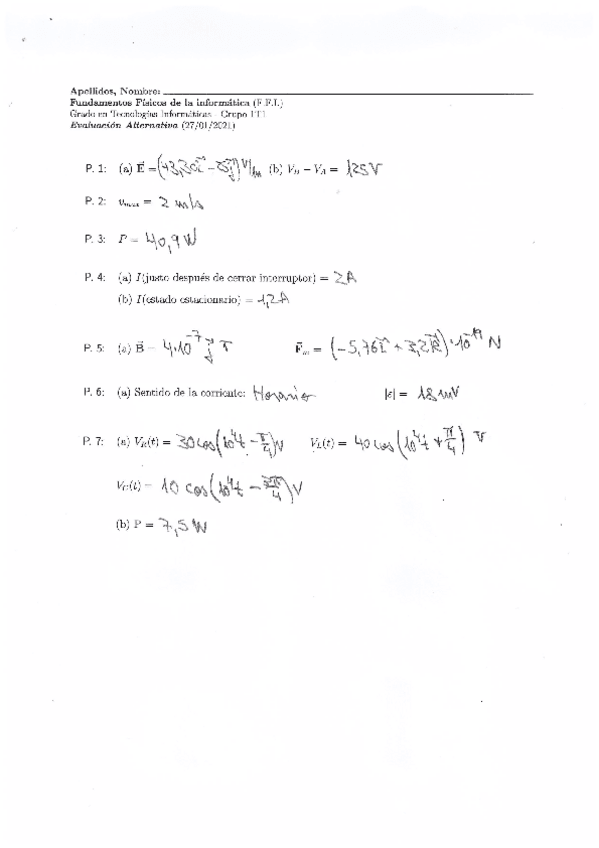 Apellidos, Nombre:
Fundamentos Físicos de la informática (F.F.I.)
Grado en Tecnologías Informáticas - Grupo IT1
Evaluación Alternativa (27/01/2021)
P. 1: (a) E⃗ = V/m (b) V_B − V_A = 125 V
P. 2: v_max = 2 m/s
P. 3: P = 40,9 W
P. 4: (a) I(justo después de cerrar interruptor) = 2A
(b) I(estado estacionario) = 1,2A
P. 5: (a) B⃗ = 4·10⁻⁷ j⃗ T F⃗_m = (−5,76 i⃗ + 3,2 k⃗)·10⁻¹⁹ N
P. 6: (a) Sentido de la corriente: Horario |ε| = 18 mV
P. 7: (a) V_R(t) = 30 cos(10⁴t − π/4) V V_L(t) = 40 cos(10⁴t + π/4) V
V_C(t) = 10 cos(10⁴t − 3π/4) V
(b) P = 7,5 W